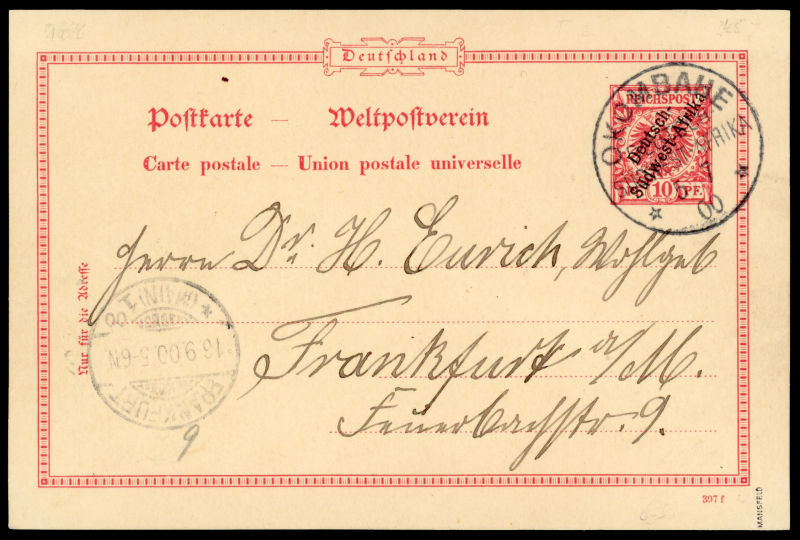 Deutschland
Postkarte — Weltpostverein
Carte postale — Union postale universelle
REICHSPOST
Deutsch-
Südwest-Afrika
10 PF.
OKOMBAHE
AFRIKA
5
00
Herrn Dr. H. Eurich, Wohlgeb
Frankfurt a/M.
Feuerbachstr. 9.
Nur für die Adresse
FRANKFURT (MAIN) 1
16.9.00.5-6N
9
397 f
MANSFELD